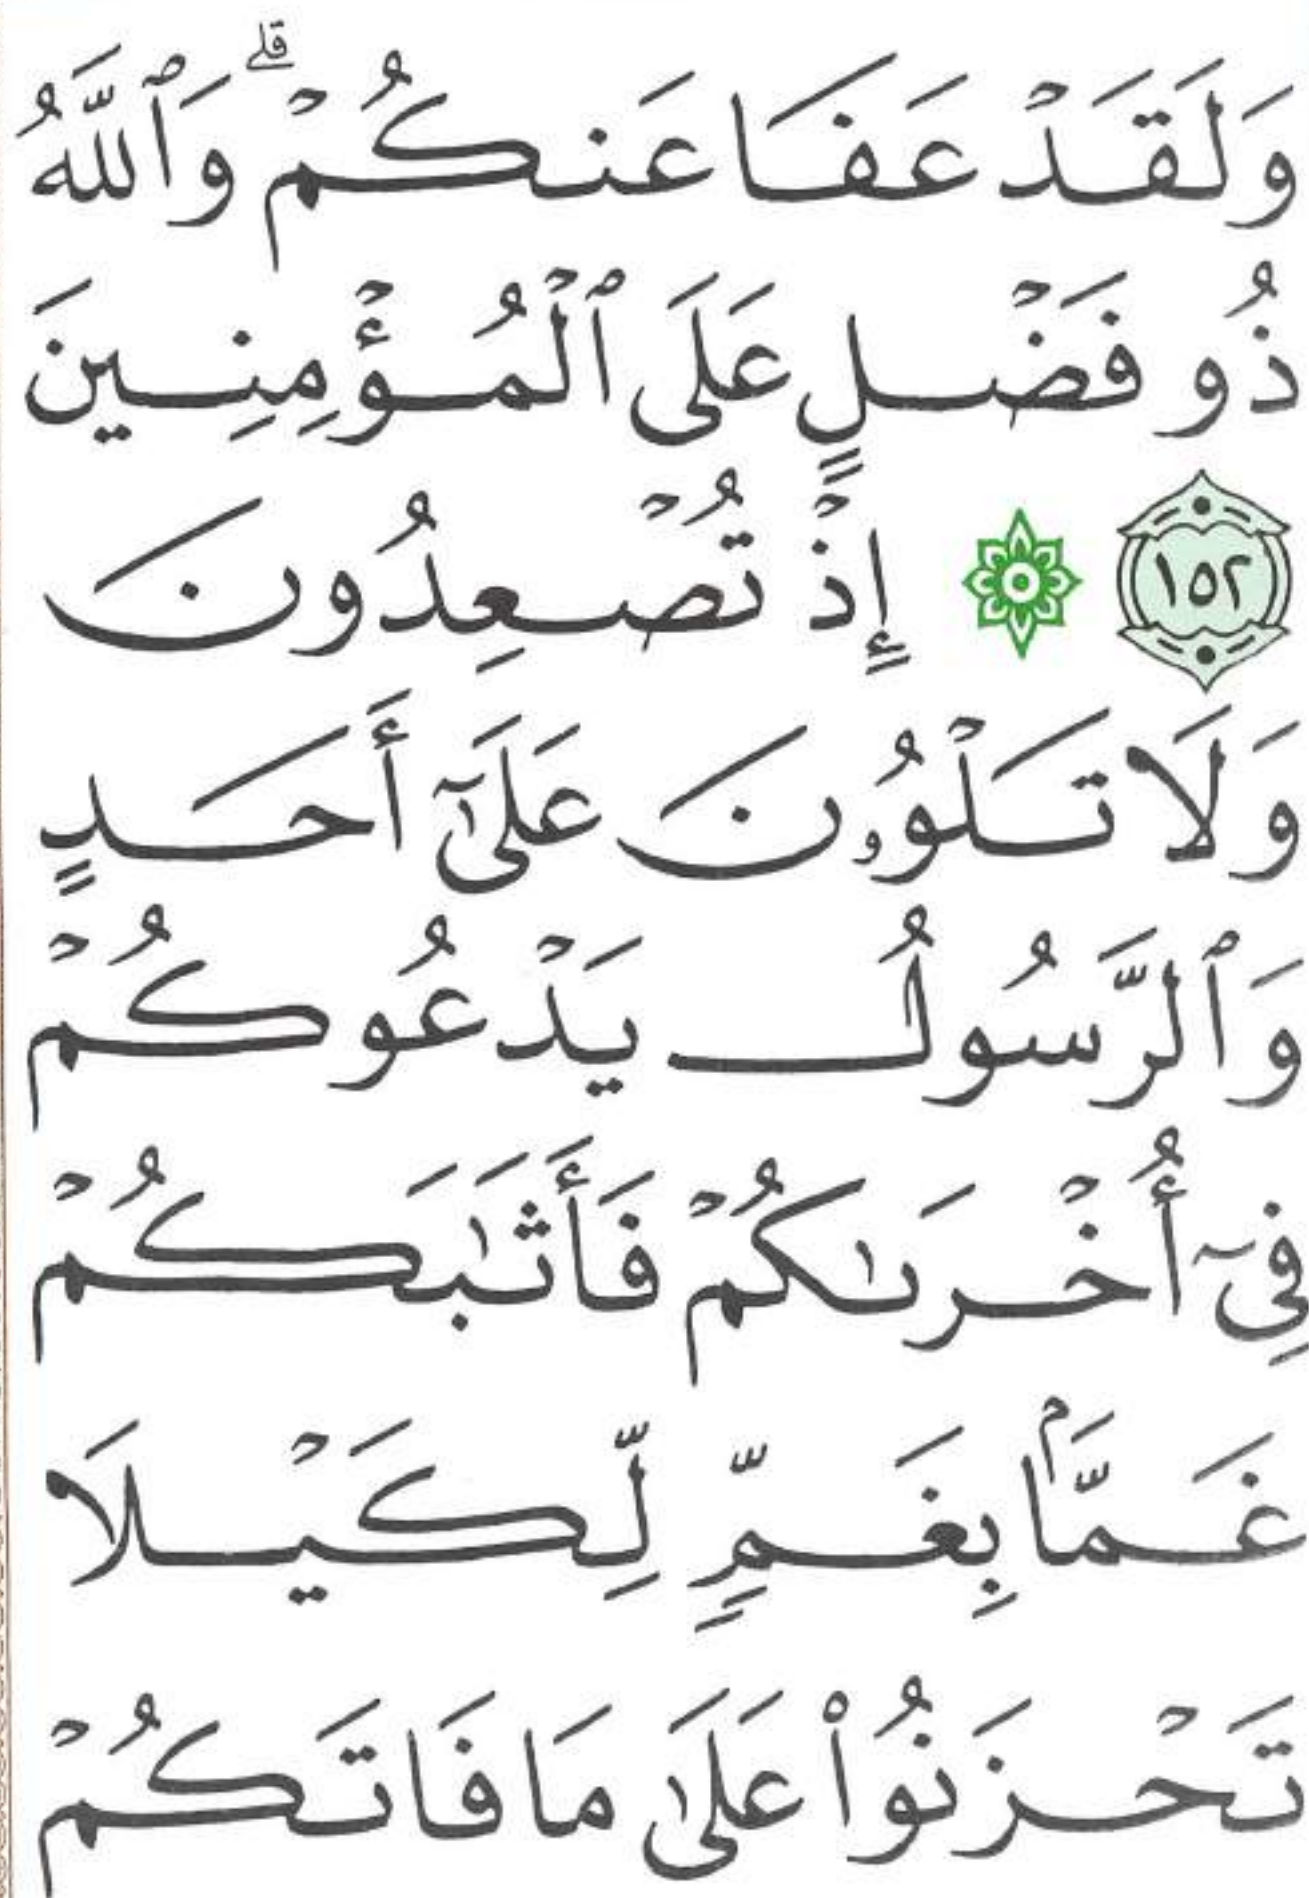 وَلَقَدْ عَفَا عَنكُمْ ۗ وَٱللَّهُ
ذُو فَضْلٍ عَلَى ٱلْمُؤْمِنِينَ
١٥٢ ۞ إِذْ تُصْعِدُونَ
وَلَا تَلْوُۥنَ عَلَىٰٓ أَحَدٍ
وَٱلرَّسُولُ يَدْعُوكُمْ
فِىٓ أُخْرَىٰكُمْ فَأَثَٰبَكُمْ
غَمَّۢا بِغَمٍّ لِّكَيْلَا
تَحْزَنُوا۟ عَلَىٰ مَا فَاتَكُمْ